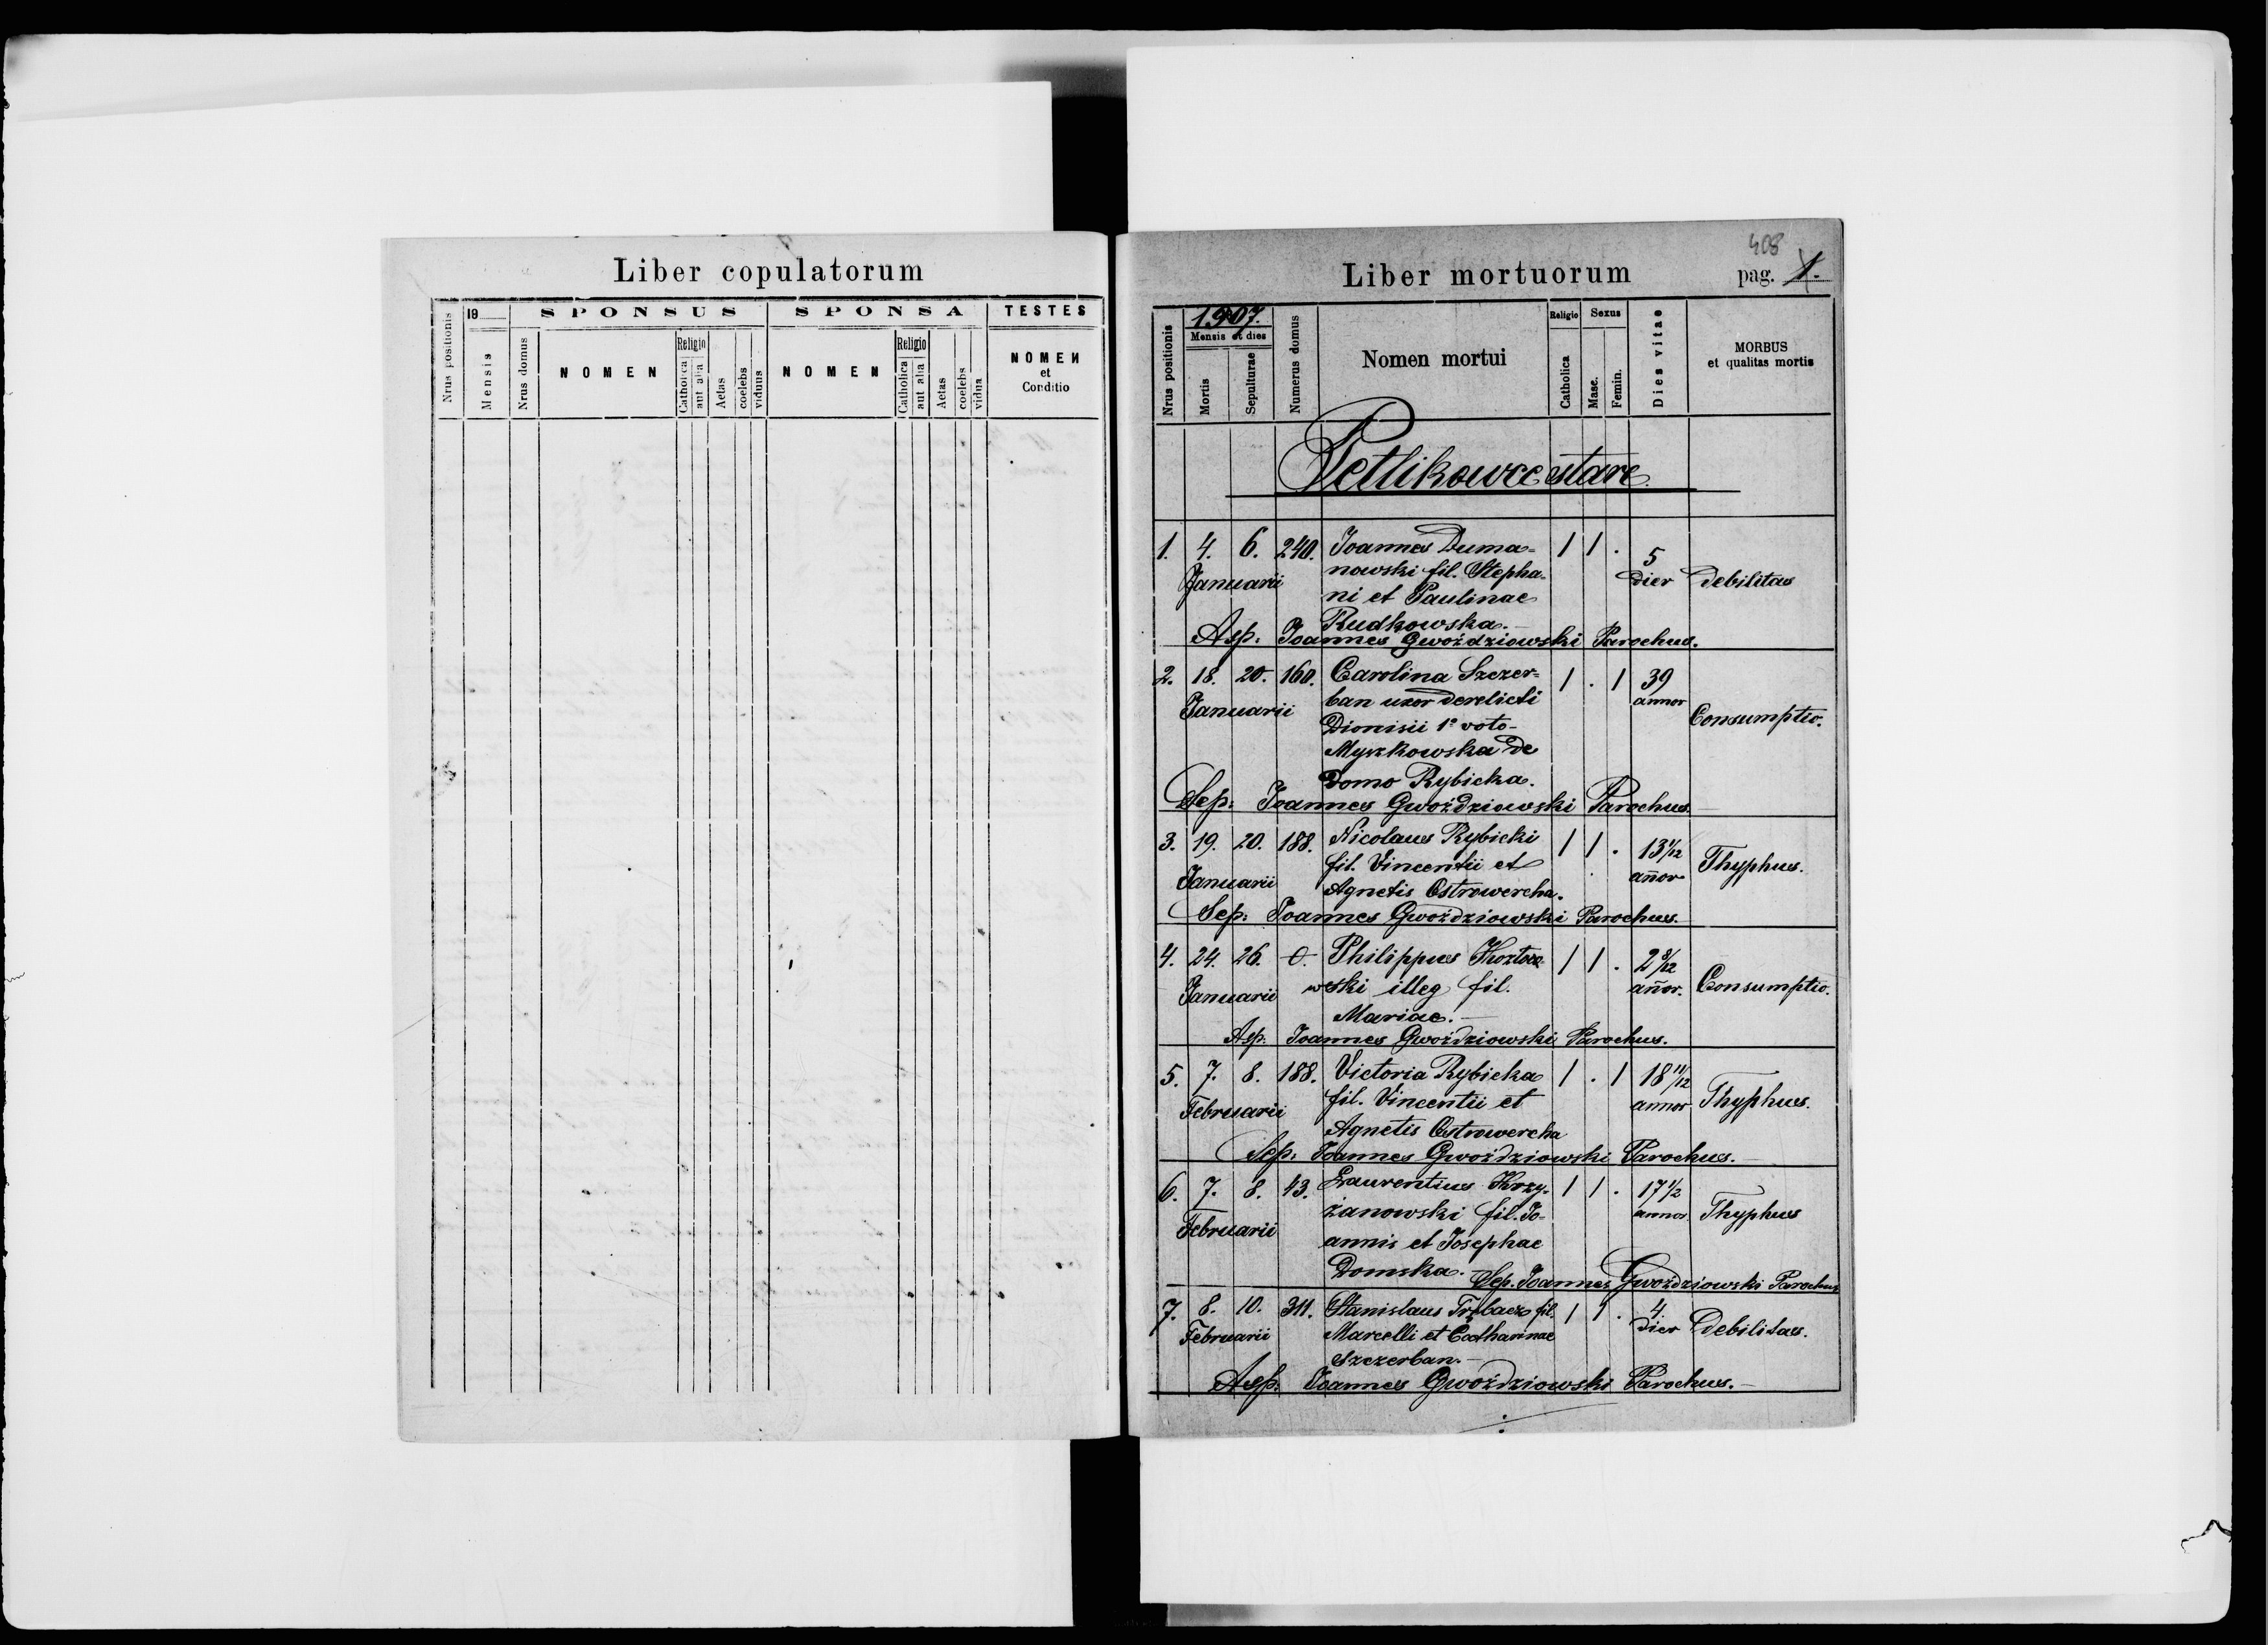 Liber copulatorum
Nrus positionis
19
Mensis
SPONSUS
Nrus domus
NOMEN
Religio
Catholica
aut alia
Aetas
coelebs
viduus
SPONSA
NOMEN
Religio
Catholica
aut alia
Aetas
coelebs
vidua
TESTES
NOMEN
et
Conditio
408
Liber mortuorum
pag. 1.
Nrus positionis
1907.
Mensis et dies
Mortis
Sepulturae
Numerus domus
Nomen mortui
Religio
Catholica
Sexus
Masc.
Femin.
Dies vitae
MORBUS
et qualitas mortis
Petlikowce stare
1. 4. 6. 240. Joannes Duma- 1 1 . 5
Januarii nowski fil. Stepha- dier Debilitas
ni et Paulinae
Rudkowska.
Asp: Joannes Gwoździowski Parochus.
2. 18. 20. 160. Carolina Szczer- 1 . 1 39
Januarii ban uxor derelicti annor Consumptio.
Dionisii 1º voto
Myszkowska de
Domo Rybicka.
Sep: Joannes Gwoździowski Parochus
3. 19. 20. 188. Nicolaus Rybicki 1 1 . 13 1/12
Januarii fil. Vincentii et añor Thyphus.
Agnetis Ostrowercha.
Sep: Joannes Gwoździowski Parochus.
4. 24. 26. 0. Philippus 1 1 .
Januarii wski illeg fil. añor. Consumptio.
Mariae.
Asp: Joannes Gwoździowski Parochus.
5. 7. 8. 188. Victoria Rybicka 1 . 1 18 11/12
Februarii fil. Vincentii et annor Thyphus.
Agnetis Ostrowercha
Sep: Joannes Gwoździowski Parochus.
6. 7. 8. 43. Laurentius Krzy- 1 1 . 17 1/2
Februarii żanowski fil. Jo- annor Thyphus
annis et Josephae
Domska.
Sep. Joannes Gwoździowski Parochus
7. 8. 10. 311. Stanislaus Trębacz fil. 1 1 . 4
Februarii Marcelli et Catharinae dier Debilitas.
Szczerban.
Asp: Joannes Gwoździowski Parochus.